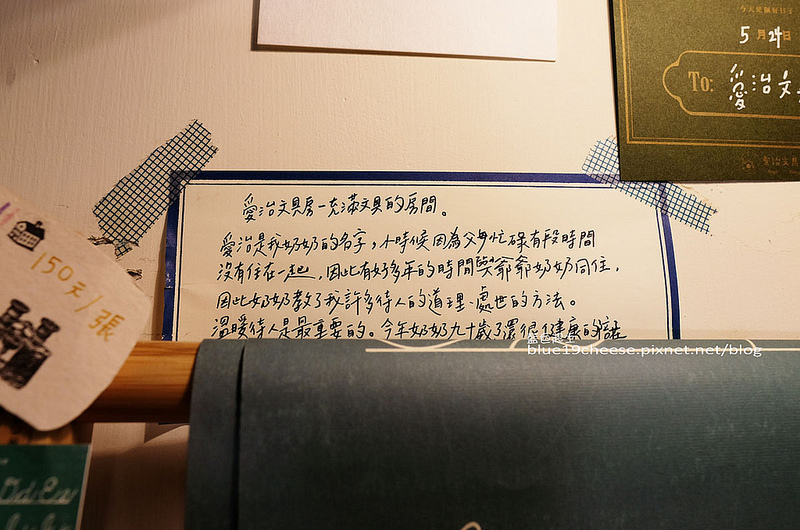 今天是個好日子
5月24日
To: 愛治文
愛治文具
愛治文具房-充滿文具的房間。
愛治是我奶奶的名字，小時候因為父母忙碌有段時間
沒有住在一起，因此有好多年的時間與爺爺奶奶同住，
因此奶奶教了我許多待人的道理、處世的方法。
溫暖待人是最重要的。今年奶奶九十歲了還很健康的
150元/張
blue19cheese.pixnet.net/blog